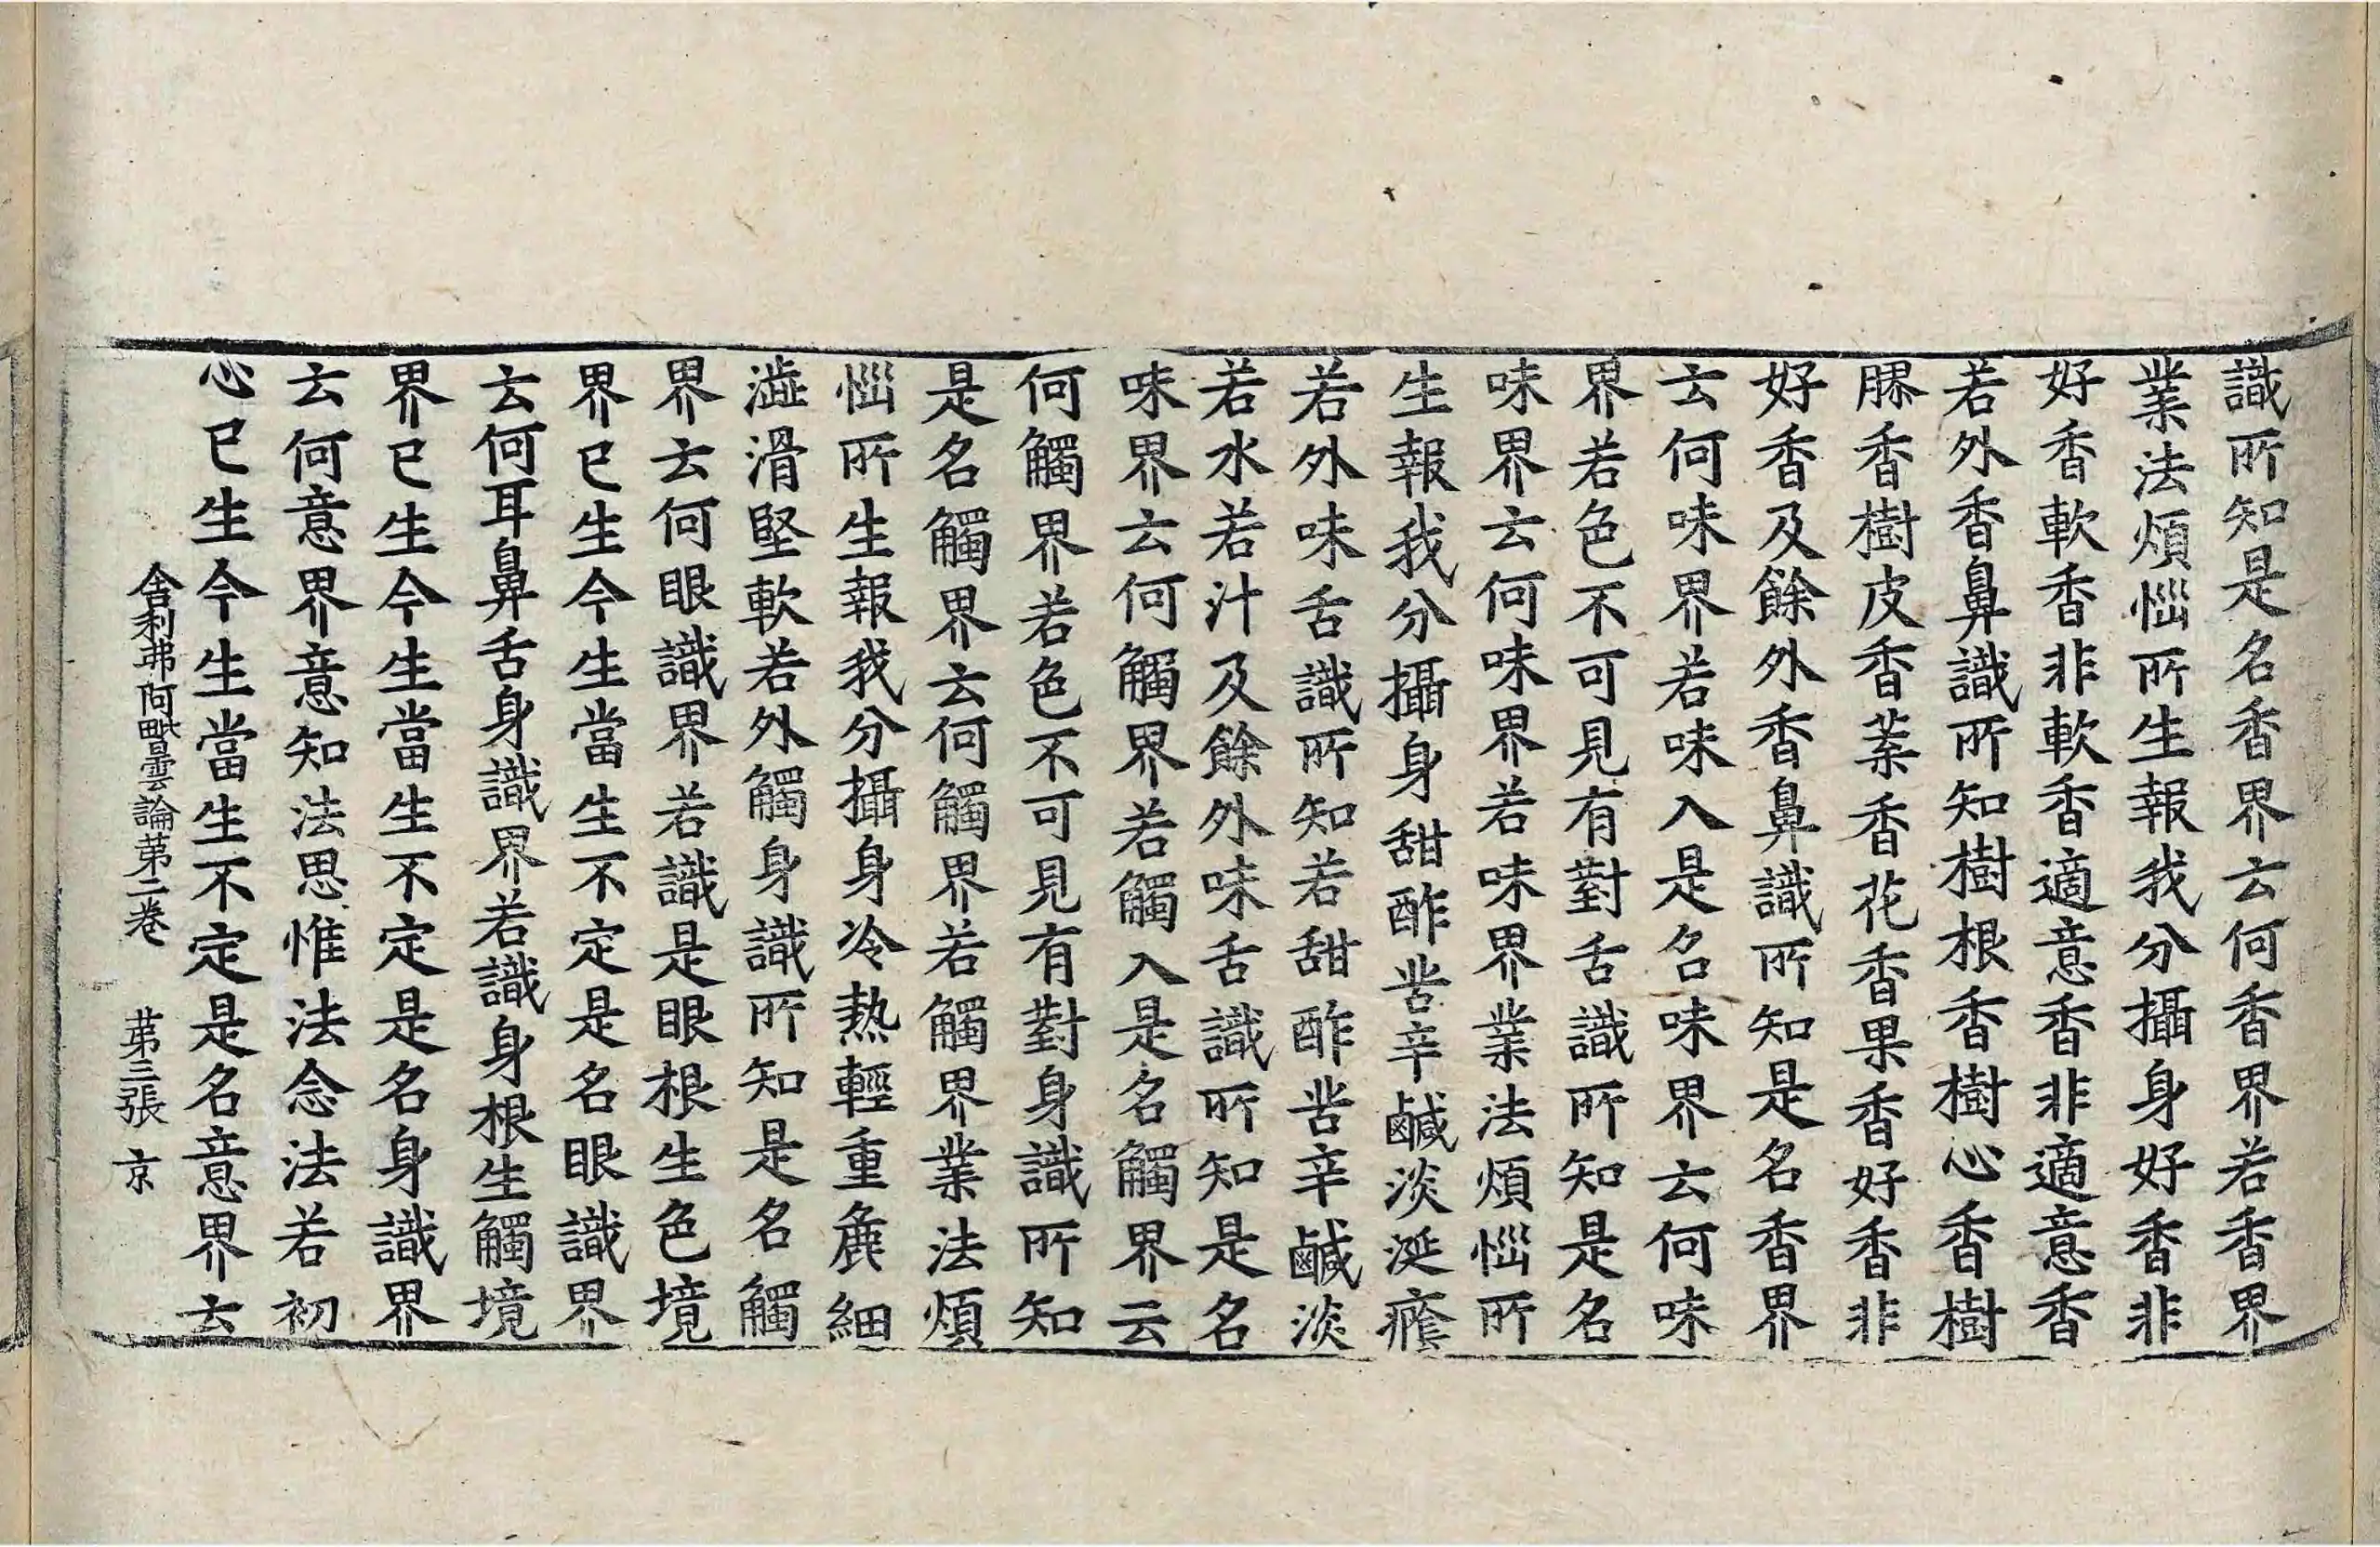 識所知是名香界云何香界若香界
業法煩惱所生報我分攝身好香非
好香軟香非軟香適意香非適意香
若外香鼻識所知樹根香樹心香樹
膠香樹皮香葉香花香果香好香非
好香及餘外香鼻識所知是名香界
云何味界若味入是名味界云何味
界若色不可見有對舌識所知是名
味界云何味界若味界業法煩惱所
生報我分攝身甜酢苦辛鹹淡涎癊
若外味舌識所知若甜酢苦辛鹹淡
若水若汁及餘外味舌識所知是名
味界云何觸界若觸入是名觸界云
何觸界若色不可見有對身識所知
是名觸界云何觸界若觸界業法煩
惱所生報我分攝身冷熱輕重麁細
澁滑堅軟若外觸身識所知是名觸
界云何眼識界若識是眼根生色境
界已生今生當生不定是名眼識界
云何耳鼻舌身識界若識身根生觸境
界已生今生當生不定是名身識界
云何意界意知法思惟法念法若初
心已生今生當生不定是名意界云
舍利弗阿毗曇論第二卷 第三張 京